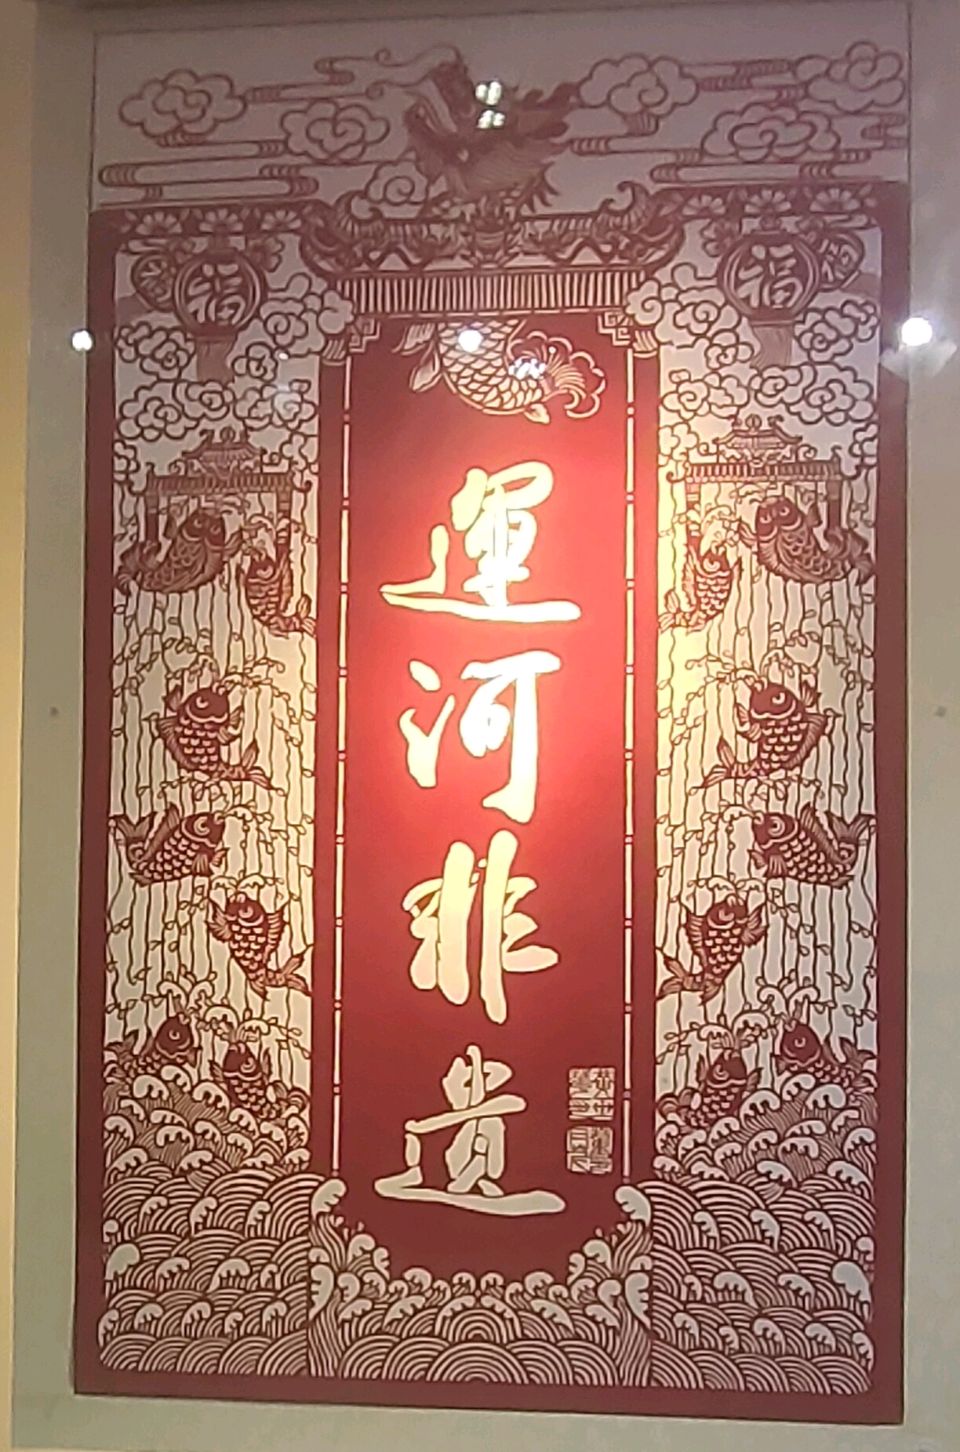 福
福
運河非遺